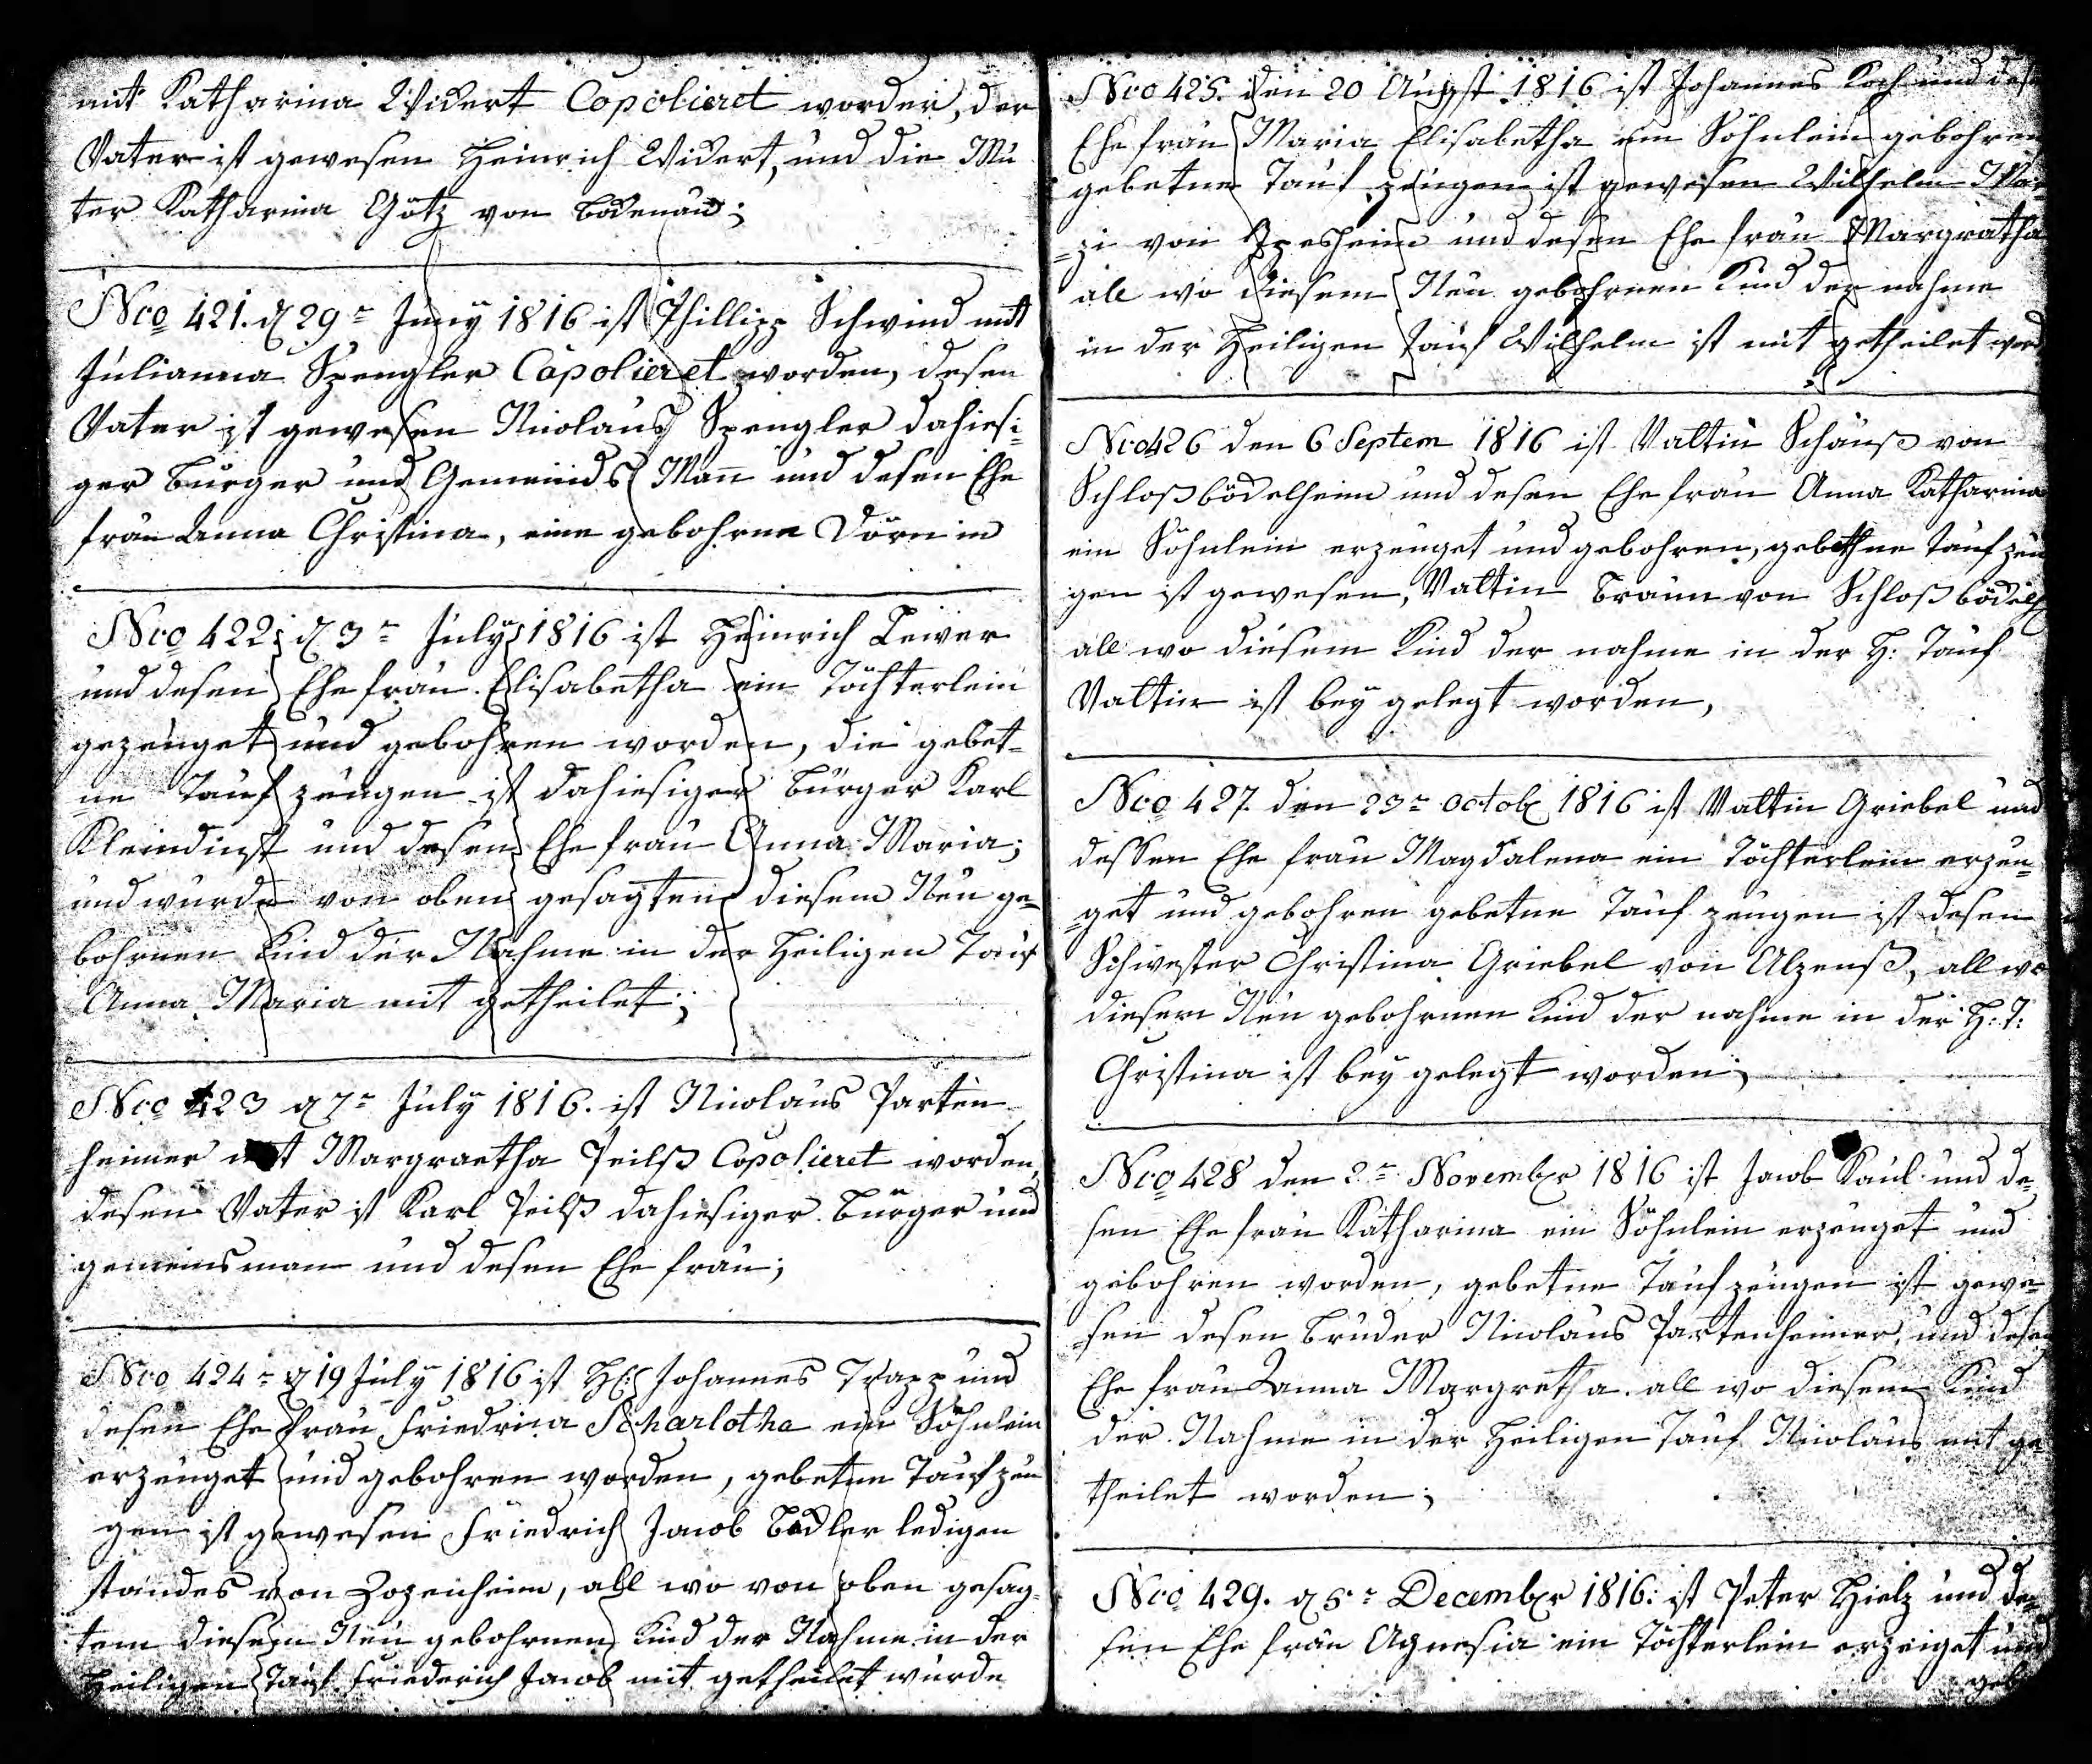 mit Katharina Widert Copolieret worden, der
Vater ist gewesen Heinrich Widert, und die Mu
ter Katharina Götz von Bodenau;
Nco 421. d 29n Juny 1816 ist Phillipp Schwind mit
Julianna Spengler Capolieret worden, desen
Vater ist gewesen Nicolaus Spengler dahiesi-
ger Burger und Gemeinds Mann und desen Ehe
frau Anna Christina, eine gebohrne Dörn in
Nco 422: d 3n July 1816 ist Heinrich Leiver
und desen Ehe frau Elisabetha ein Töchterlein
gezeuget und gebohren worden, die gebet-
=ne Tauf zeugen ist dahiesiger Burger Karl
Kleindinst und desen Ehe frau Anna Maria;
und wurde von oben gesagten diesem Neu ge=
bohrnen Kind der Nahme in der Heiligen Tauf
Anna Maria mit getheilet;
Nco 423 d 7n July 1816. ist Nicolaus Parten
heimer mit Margraetha Peilß Copolieret worden,
desen Vater ist Karl Peilß dahiesiger Bürger und
gemeinsman und desen Ehe frau;
Nco 424n d 19 July 1816 ist H: Johannes Trapp und
desen Ehe frau Friedrina Scharlotha ein Söhnlein
erzeuget und gebohren worden, gebetne Tauf zeu
gen ist gewesen Friedrich Jacob Badler ledigen
standes von Zozenheim, all wo von oben gesag-
tem diesem Neu gebohrnen Kind der Nahme in der
Heiligen Tauf Friederich Jacob mit getheilet wurde
Nco 425. den 20 Augst 1816 ist Johannes Koch und des
Ehe frau Maria Elisabetha ein Söhnlein gebohren
gebetne Tauf zeugen ist gewesen Wilhelm
=zi von Ippesheim und desen Ehe frau Margratha
all wo diesem Neu gebohrnen Kind der nahme
in der Heiligen Tauf Wilhelm ist mit getheilet word
Nco 426 den 6 Septem 1816 ist Valtin Schauß von
Schloßbödelheim und desen Ehe frau Anna Katharina
ein Söhnlein erzeuget und gebohren, gebethne Tauf zeu
gen ist gewesen, Valtin Braun von Schloß bödelh
all wo diesem Kind der nahme in der H: Tauf
Valtin ist bey gelegt worden,
Nco 427 den 23n octob 1816 ist Valtin Griebel und
dessen Ehe frau Magdalena ein Töchterlein erzeu=
=get und gebohren gebetne Tauf zeugen ist desen
Schwester Christina Griebel von Alzenß, all wo
diesem Neu gebohrnen Kind der nahme in der H: T:
Christina ist bey gelegt worden;
Nco 428 den 2n Novembr 1816 ist Jacob Kaul und de=
sen Ehe frau Katharina ein Söhnlein erzeuget und
gebohren worden, gebetne Tauf zeugen ist gewe=
=sen desen Bruder Nicolaus Partenheimer, und desen
Ehe frau Anna Margretha. all wo diesem Kind
der Nahme in der Heiligen Tauf Nicolaus mit ge
theilet worden;
Nco 429. d 5n Decembr 1816: ist Peter Hielz und de=
sen Ehe frau Agnesia ein Töchterlein erzeiget und
geb